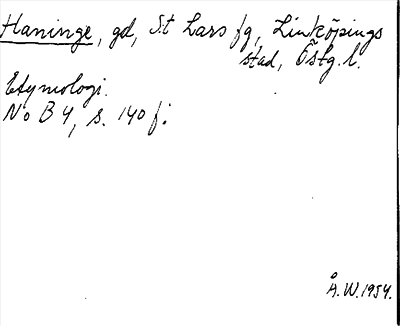 Haninge, gd, St Lars fg, Linköpings
stad, Östg. l.
Etymologi.
No B 4, s. 140 f.
Å. W. 1954.